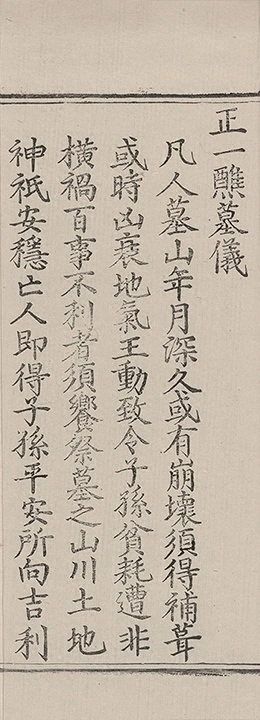 正一醮墓儀
凡人墓山年月深久或有崩壞須得補葺
或時凶衰地氣王動致令子孫貧耗遭非
橫禍百事不利者須饗祭墓之山川土地
神祇安穩亡人即得子孫平安所向吉利